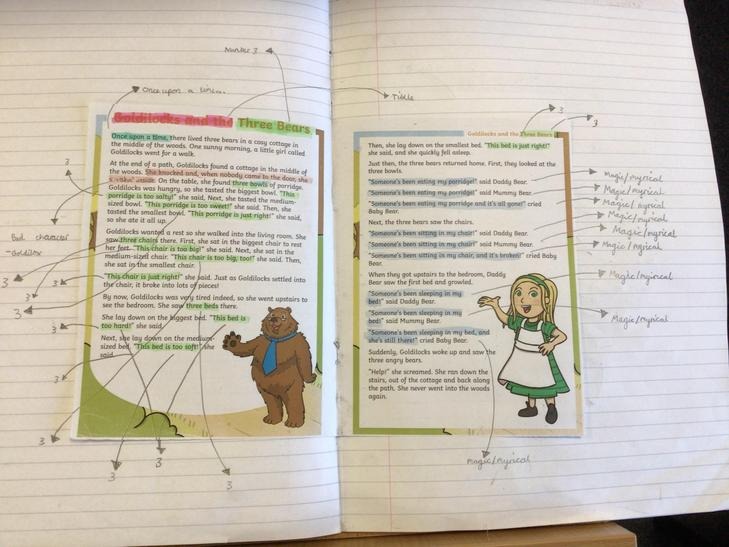 Number 3
Once upon a time.
Goldilocks and the Three Bears
Once upon a time, there lived three bears in a cosy cottage in
the middle of the woods. One sunny morning, a little girl called
Goldilocks went for a walk.
At the end of a path, Goldilocks found a cottage in the middle of
the woods. She knocked and, when nobody came to the door, she
inside. On the table, she found three bowls of porridge.
Goldilocks was hungry, so she tasted the biggest bowl. "This
porridge is too salty!" she said. Next, she tasted the medium-
sized bowl. "This porridge is too sweet!" she said. Then, she
tasted the smallest bowl. "This porridge is just right!" she said,
so she ate it all up.
Goldilocks wanted a rest so she walked into the living room. She
saw three chairs there. First, she sat in the biggest chair to rest
her feet. "This chair is too big!" she said. Next, she sat in the
medium-sized chair. "This chair is too big, too!" she said. Then,
she sat in the smallest chair.
"This chair is just right!" she said. Just as Goldilocks settled into
the chair, it broke into lots of pieces!
By now, Goldilocks was very tired indeed, so she went upstairs to
see the bedroom. She saw three beds there.
She lay down on the biggest bed. "This bed is
too hard!" she said.
Next, she lay down on the medium-
sized bed. "This bed is too soft!" she
said.
3
Bad character
3
3
3
3
3
3
3
3
3
Title
3
3
Goldilocks and the Three Bears
Then, she lay down on the smallest bed. "This bed is just right!"
she said, and she quickly fell asleep.
Just then, the three bears returned home. First, they looked at the
three bowls.
"Someone's been eating my porridge!" said Daddy Bear.
"Someone's been eating my porridge!" said Mummy Bear.
"Someone's been eating my porridge and it's all gone!" cried
Baby Bear.
Next, the three bears saw the chairs.
"Someone's been sitting in my chair!" said Daddy Bear.
"Someone's been sitting in my chair!" said Mummy Bear.
"Someone's been sitting in my chair, and it's broken!" cried Baby
Bear.
When they got upstairs to the bedroom, Daddy
Bear saw the first bed and growled.
"Someone's been sleeping in my
bed!" said Daddy Bear.
"Someone's been sleeping in my
bed!" said Mummy Bear.
"Someone's been sleeping in my bed, and
she's still there!" cried Baby Bear.
Suddenly, Goldilocks woke up and saw the
three angry bears.
"Help!" she screamed. She ran down the
stairs, out of the cottage and back along
the path. She never went into the woods
again.
Magic/myrical
Magic/myrical
Magic/myrical
Magic/myrical
Magic/myrical
Magic/myrical
Magic/myrical
Magic/myrical
Magic/myrical